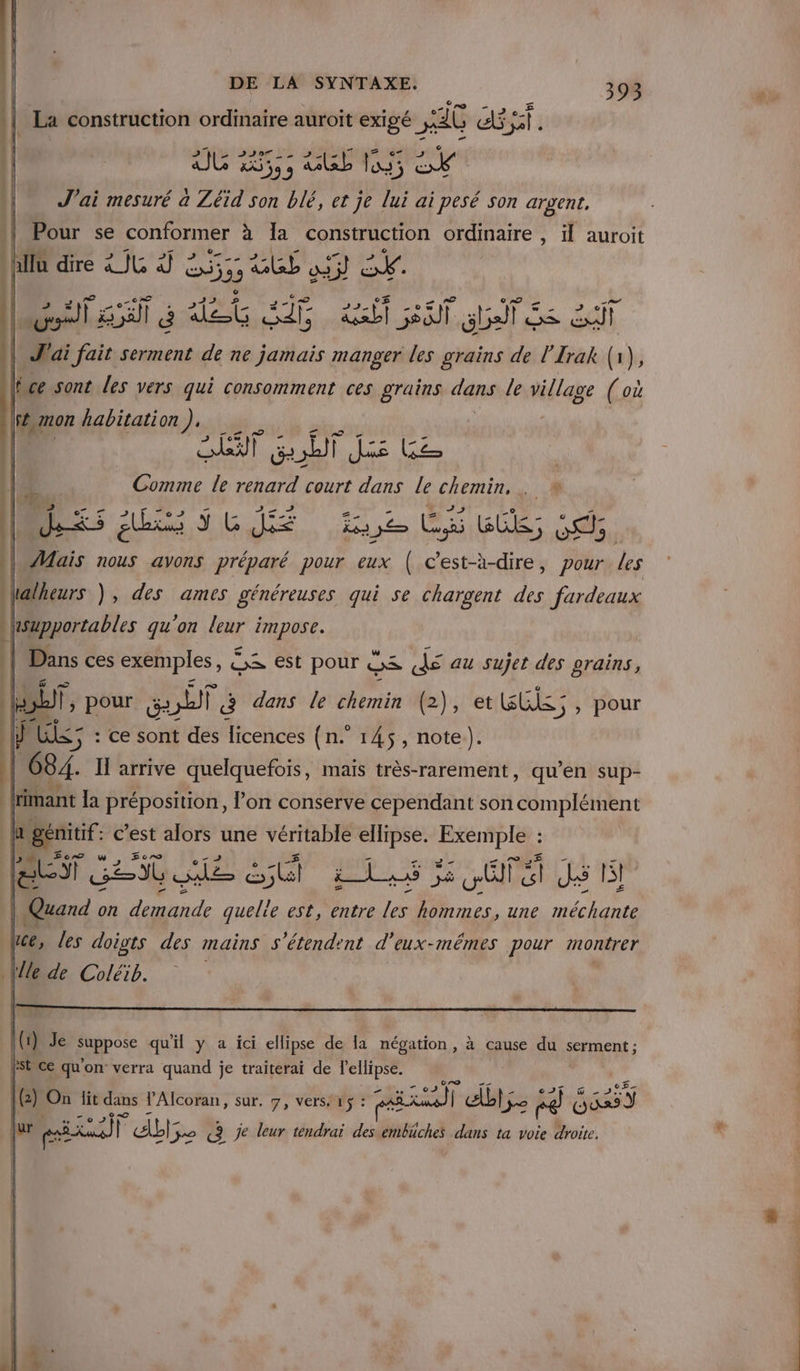 DE LA SYNTAXE. 393
La construction ordinaire auroit exigé
كلت زيدا طعامه ووزنته ماله
J'ai mesuré à Zéid son blé, et je lui ai pesé son argent.
Pour se conformer à la construction ordinaire, il auroit
allu dire كلت لزيد طعامه ووزنت له ماله.
آليت حب العراق الدهر أطعمه والحب يأكله في القرية السوس
J'ai fait serment de ne jamais manger les grains de l'Irak (1),
t ce sont les vers qui consomment ces grains dans le village (où
st mon habitation).
كما عسل الطريق الثعلب
Comme le renard court dans le chemin.
ولكن رحلناها نفوسا كريمة تحمل ما لا يستطاع فتحمل
Mais nous avons préparé pour eux ( c'est-à-dire, pour les
malheurs ), des ames généreuses qui se chargent des fardeaux
nsupportables qu'on leur impose.
Dans ces exemples, حب est pour على حب au sujet des grains,
الطريق, pour في الطريق dans le chemin (2), et رحلناها, pour
رحلنا لها : ce sont des licences (n.° 145, note).
684. Il arrive quelquefois, mais très-rarement, qu'en sup-
rimant la préposition, l'on conserve cependant son complément
a génitif: c'est alors une véritable ellipse. Exemple :
إذا قيل أي الناس شر قبيلة أشارت كليب بالأكف الأصابع
Quand on demande quelle est, entre les hommes, une méchante
uce, les doigts des mains s'étendent d'eux-mêmes pour montrer
lle de Coléib.
(1) Je suppose qu'il y a ici ellipse de la négation, à cause du serment;
est ce qu'on verra quand je traiterai de l'ellipse.
(2) On lit dans l'Alcoran, sur. 7, vers. 15 : لأقعدن لهم صراطك المستقيم
ur في صراطك المستقيم je leur tendrai des embûches dans ta voie droite.